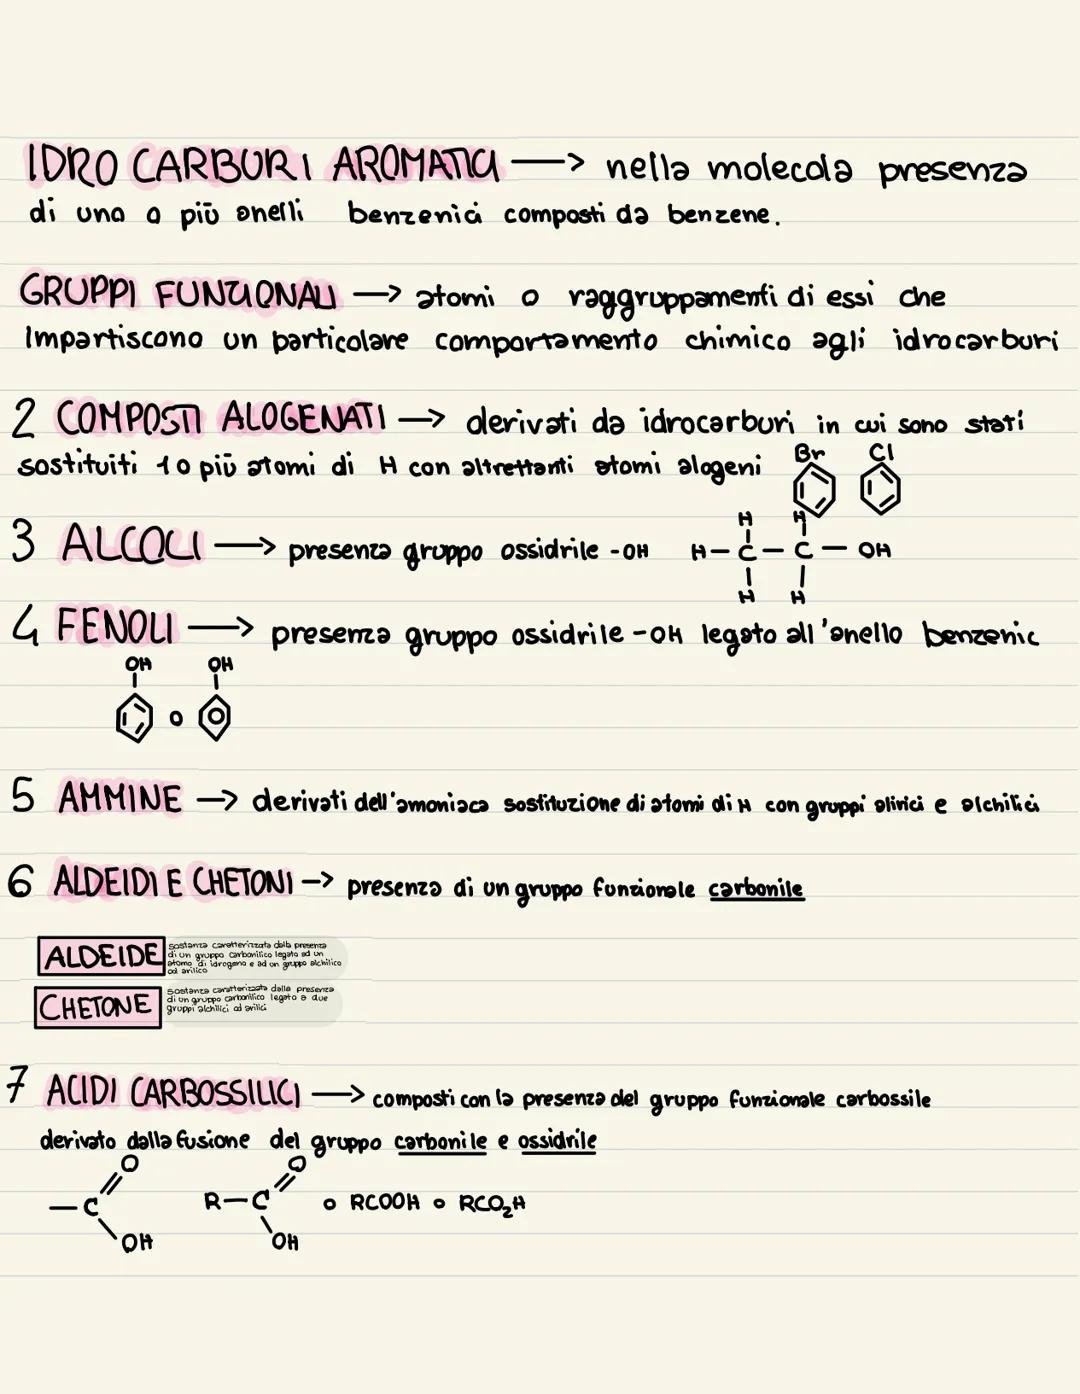 IDRO CARBURI AROMATICI → nella molecola presenza
di uno o più anelli benzenici composti da benzene.
GRUPPI FUNZIONALI → atomi o raggruppamenti di essi che
Impartiscono un particolare comportamento chimico agli idrocarburi
2 COMPOSTI ALOGENATI → derivati da idrocarburi in cui sono stati
sostituiti 1 o più atomi di H con altrettanti atomi alogeni
Br Cl
3 ALCOLI → presenza gruppo ossidrile -OH
H H
H-C-C-OH
H H
4 FENOLI → presenza gruppo ossidrile -OH legato all'anello benzenic
OH OH
o
5 AMMINE → derivati dell'amoniaca sostituzione di atomi di H con gruppi alirici e alchilici
6 ALDEIDI E CHETONI → presenza di un gruppo funzionale carbonile
ALDEIDE
sostanza caratterizzata dalla presenza
di un gruppo carbonilico legato ad un
atomo di idrogeno e ad un gruppo alchilico
od arilico
CHETONE
sostanza caratterizzata dalla presenza
di un gruppo carbonilico legato a due
gruppi alchilici od arilici
7 ACIDI CARBOSSILICI → composti con la presenza del gruppo funzionale carbossile
derivato dalla fusione del gruppo carbonile e ossidrile
O O
-C R-C o RCOOH o RCO₂H
OH OH